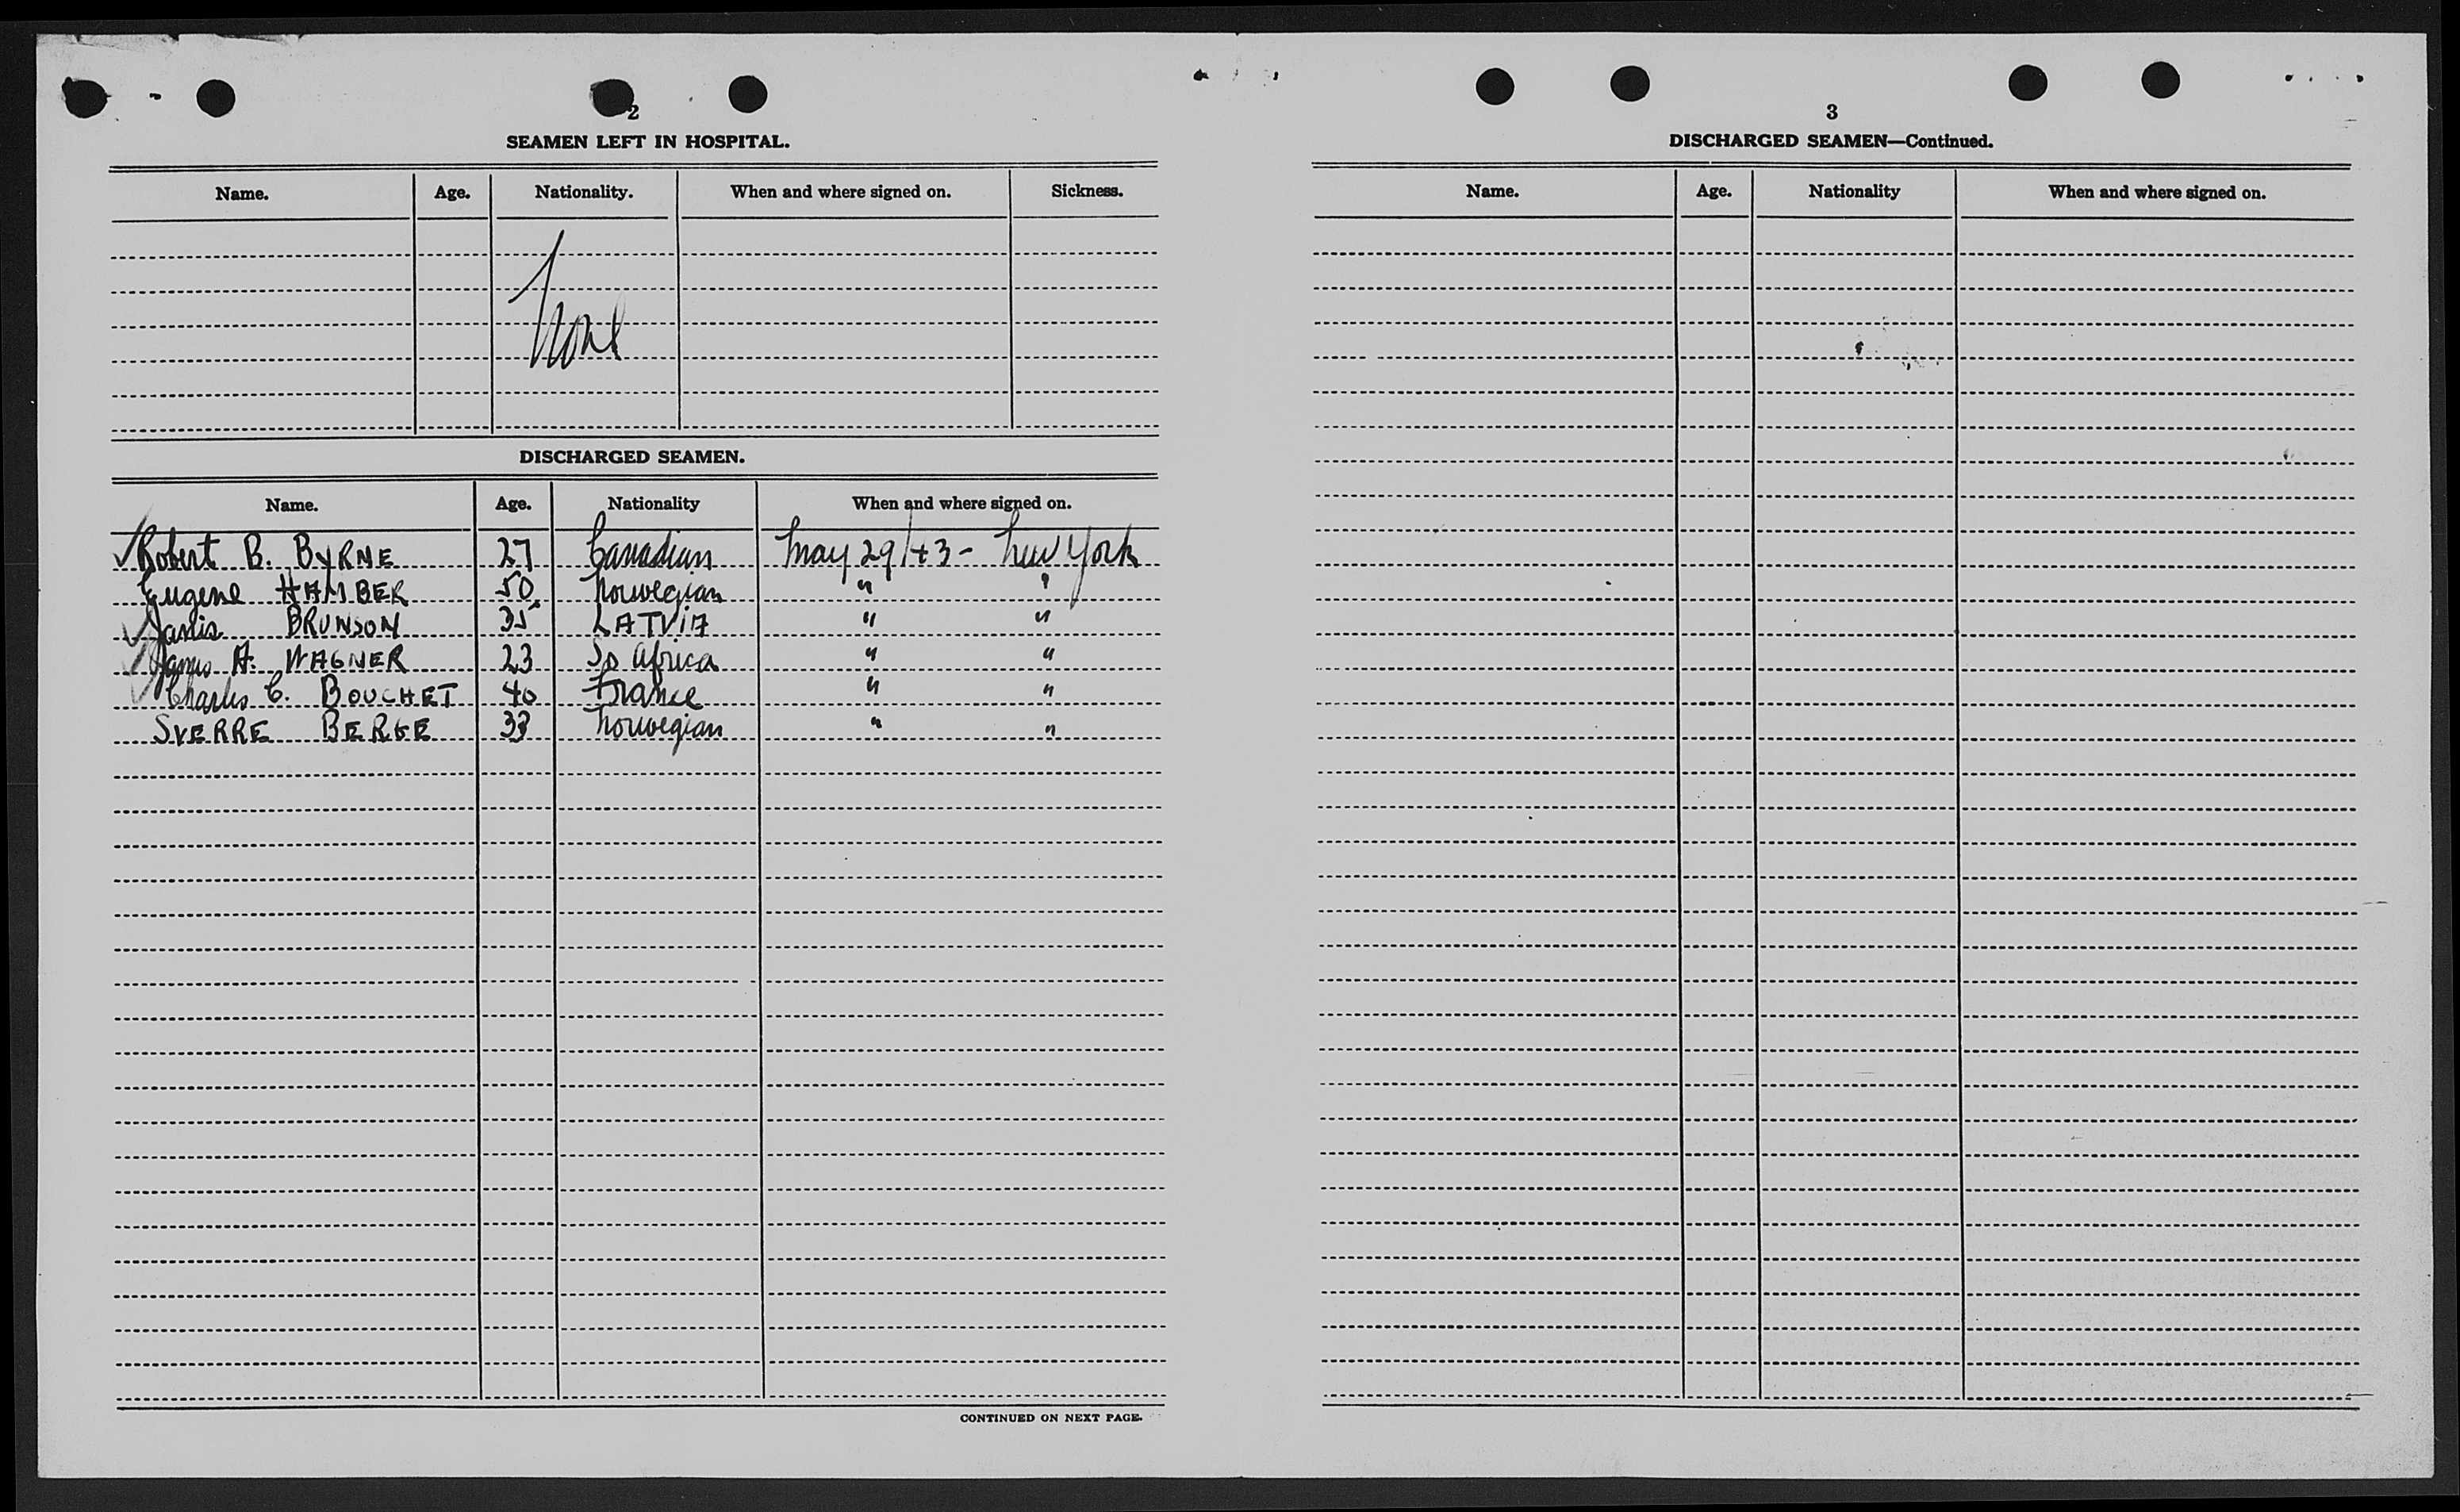 2
SEAMEN LEFT IN HOSPITAL.
Name. Age. Nationality. When and where signed on. Sickness.
None
DISCHARGED SEAMEN.
Name. Age. Nationality When and where signed on.
Robert B. BYRNE 27 Canadian May 29/43 - New York
Eugene HAMBER 50 Norwegian " "
Janis BRUNSON 35 LATViA " "
James A. WAGNER 23 So Africa " "
Charles C. BOUCHET 40 France " "
SVERRE BERGE 33 Norwegian " "
CONTINUED ON NEXT PAGE.
3
DISCHARGED SEAMEN—Continued.
Name. Age. Nationality When and where signed on.